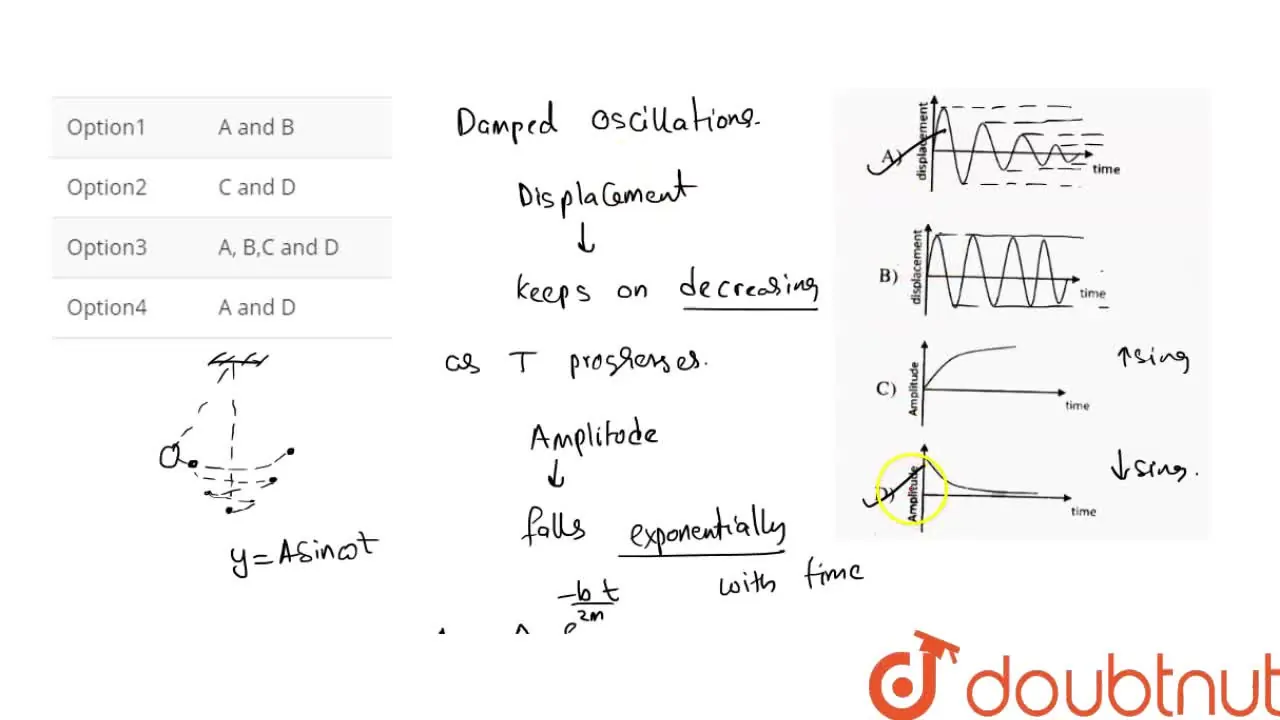 Option1 A and B
Option2 C and D
Option3 A, B,C and D
Option4 A and D
y=Asinωt
Damped oscillations.
Displacement
↓
keeps on decreasing
as T progresses.
Amplitude
↓
falls exponentially
with time
-b t
2m
A)
displacement
time
B)
displacement
time
C)
Amplitude
time
↑sing
D)
Amplitude
time
↓sing.
doubtnut